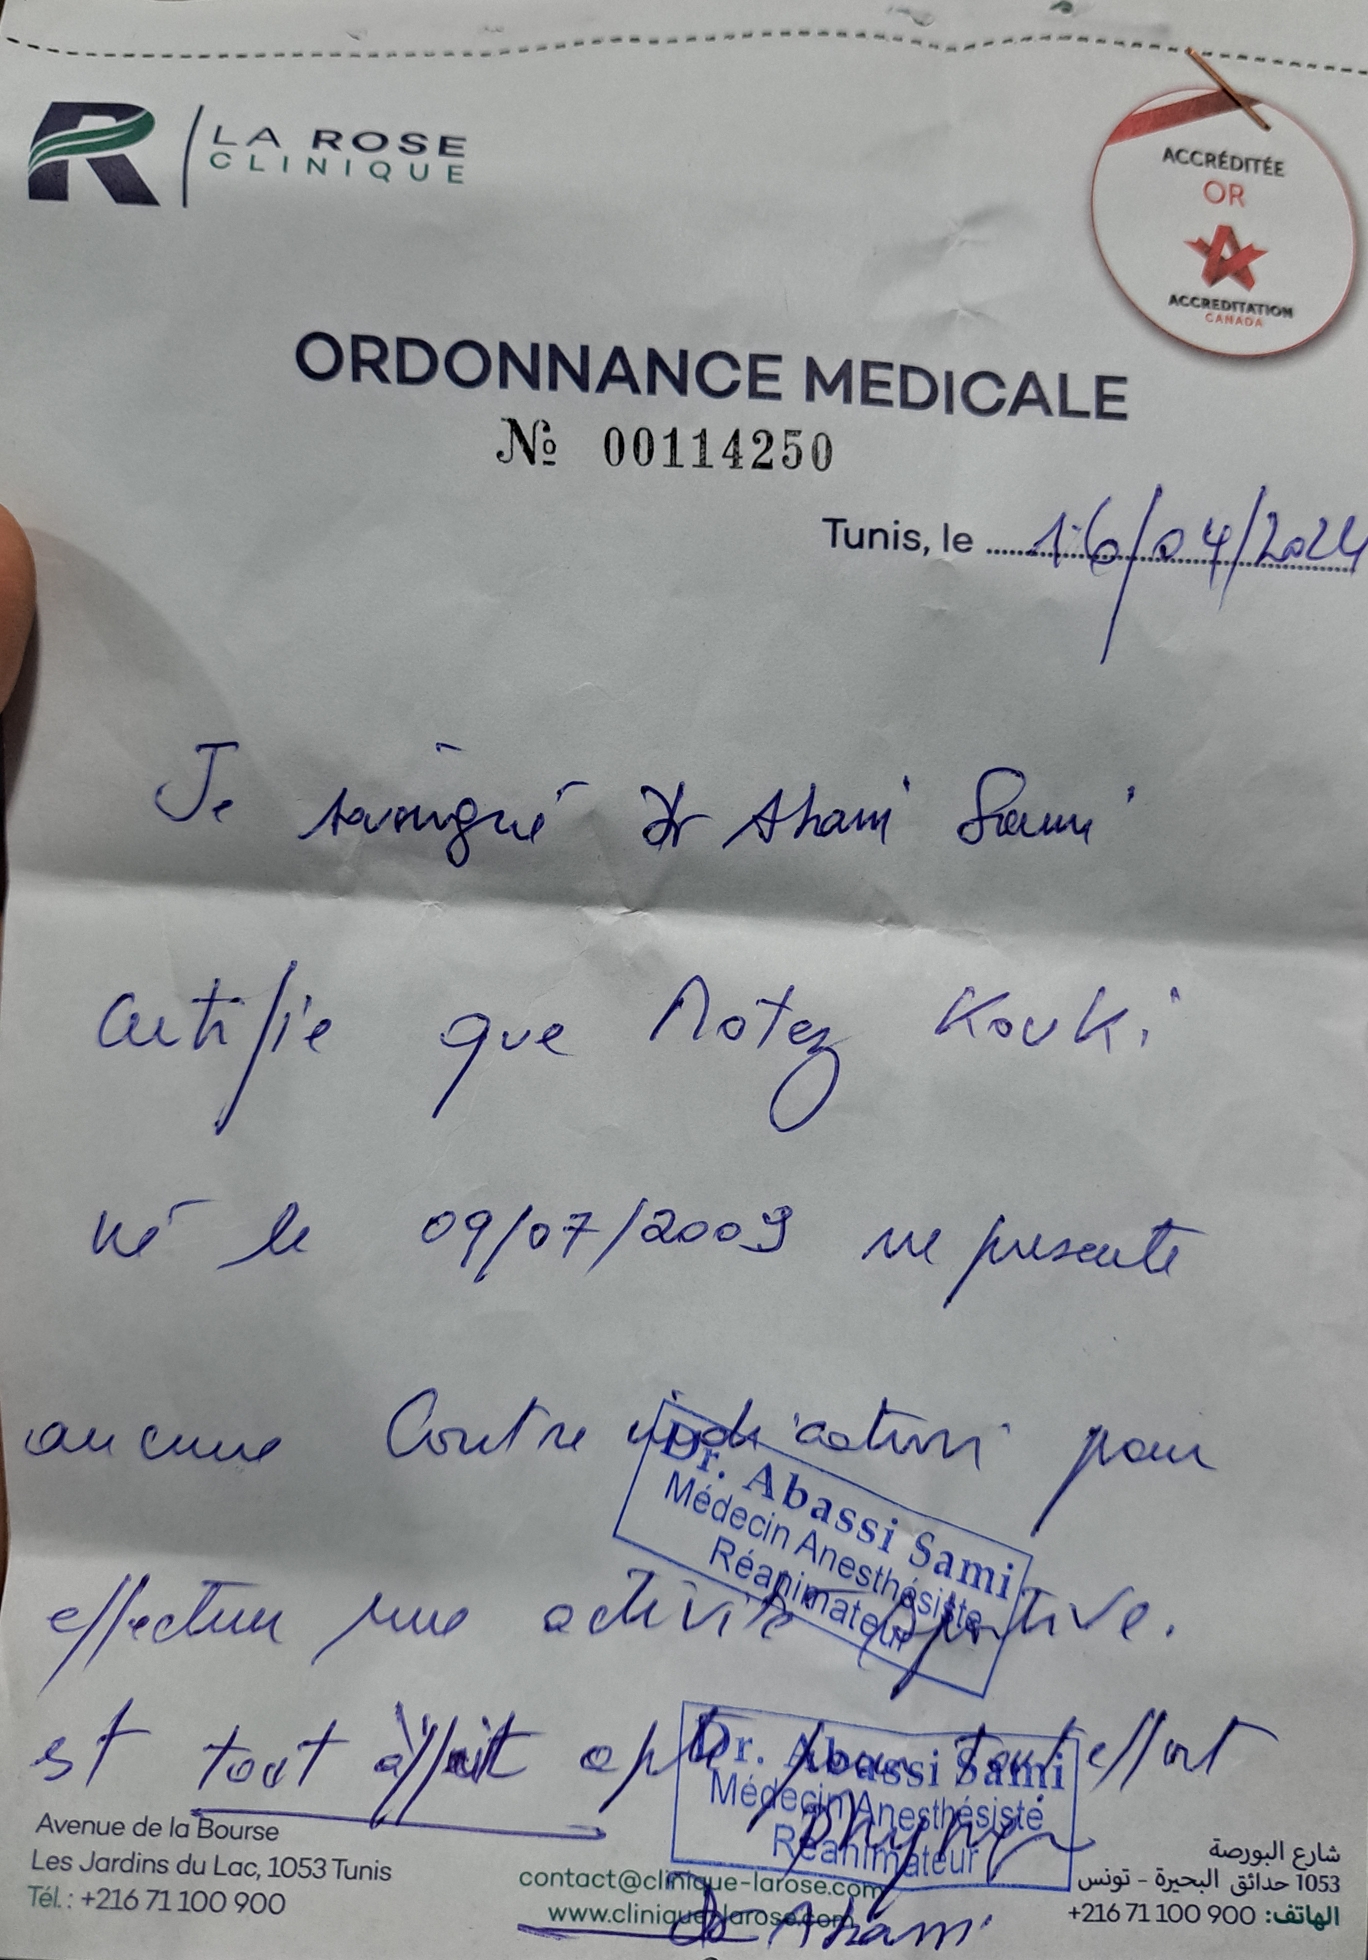 LA ROSE
CLINIQUE
ACCRÉDITÉE
OR
ACCREDITATION
CANADA
ORDONNANCE MEDICALE
№ 00114250
Tunis, le 16/04/2024
Je soussigné Dr Abassi Sami
certifie que Motez Kouki
né le 09/07/2009 ne presente
aucune Contre indication pour
effectuer une activité sportive.
est tout à fait apte pour tout effort
physique
Dr. Abassi Sami
Médecin Anesthésiste
Réanimateur
Dr. Abassi Sami
Médecin Anesthésiste
Réanimateur
Dr Abassi
Avenue de la Bourse
Les Jardins du Lac, 1053 Tunis
Tél.: +216 71 100 900
contact@clinique-larose.com
www.clinique-larose.com
شارع البورصة
1053 حدائق البحيرة - تونس
الهاتف: +216 71 100 900